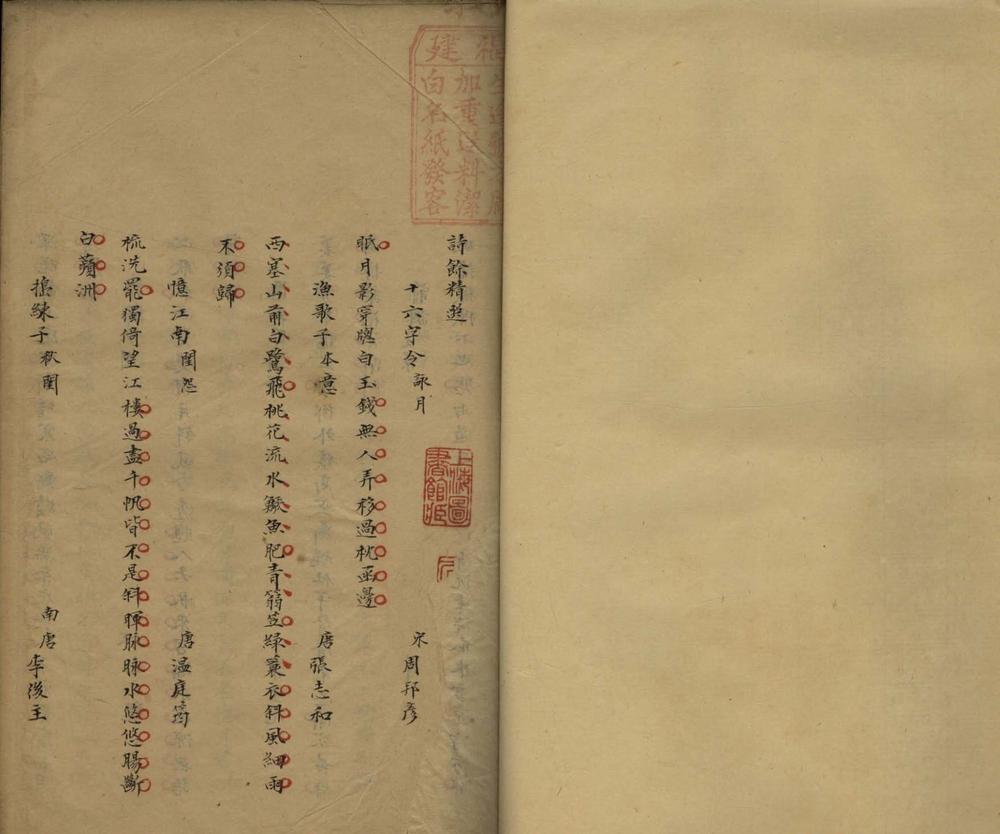 建福
加重料潔
白名紙發客
詩餘精選
十六字令 詠月 宋周邦彥
眠月影穿牕白玉錢無人弄移過枕函邊
上海圖書館藏
漁歌子 本意 唐張志和
西塞山前白鷺飛桃花流水鱖魚肥青篛笠綠簑衣斜風細雨
不須歸
憶江南 閨怨 唐溫庭筠
梳洗罷獨倚望江樓過盡千帆皆不是斜暉脉脉水悠悠腸斷
白蘋洲
搗練子 秋閨 南唐李後主